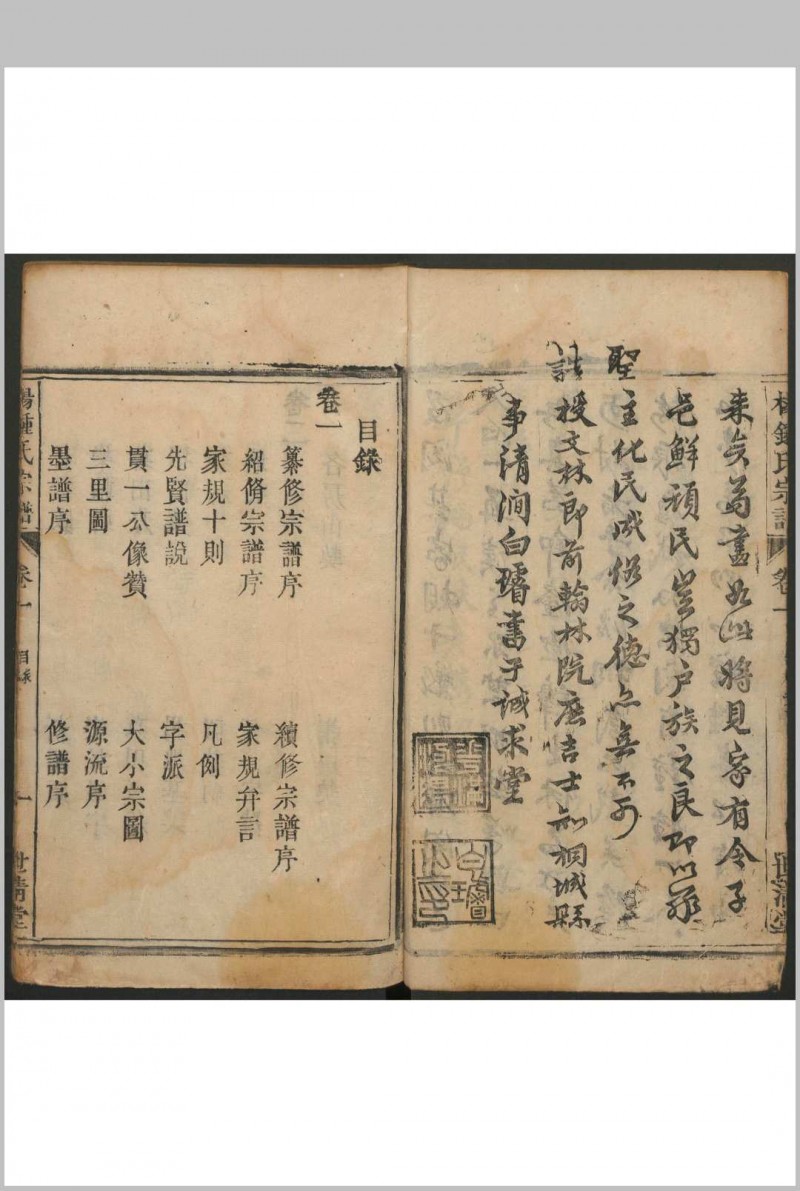 來矣苟盡如此將見家有令子
邑鮮頑民豈獨戶族之良即以
聖主化民成俗之德亦無不可
誥授文林郎前翰林院庶吉士知桐城縣
事清澗白瓊書于誠求堂
鍾氏宗譜 卷一
目錄
卷一
纂修宗譜序 續修宗譜序
紹脩宗譜序 家規弁言
家規十則 凡例
先賢譜說 字派
貫一公像贊 大小宗圖
三里圖 源流序
墨譜序 修譜序
鍾氏宗譜 卷一 目錄 一 世清堂